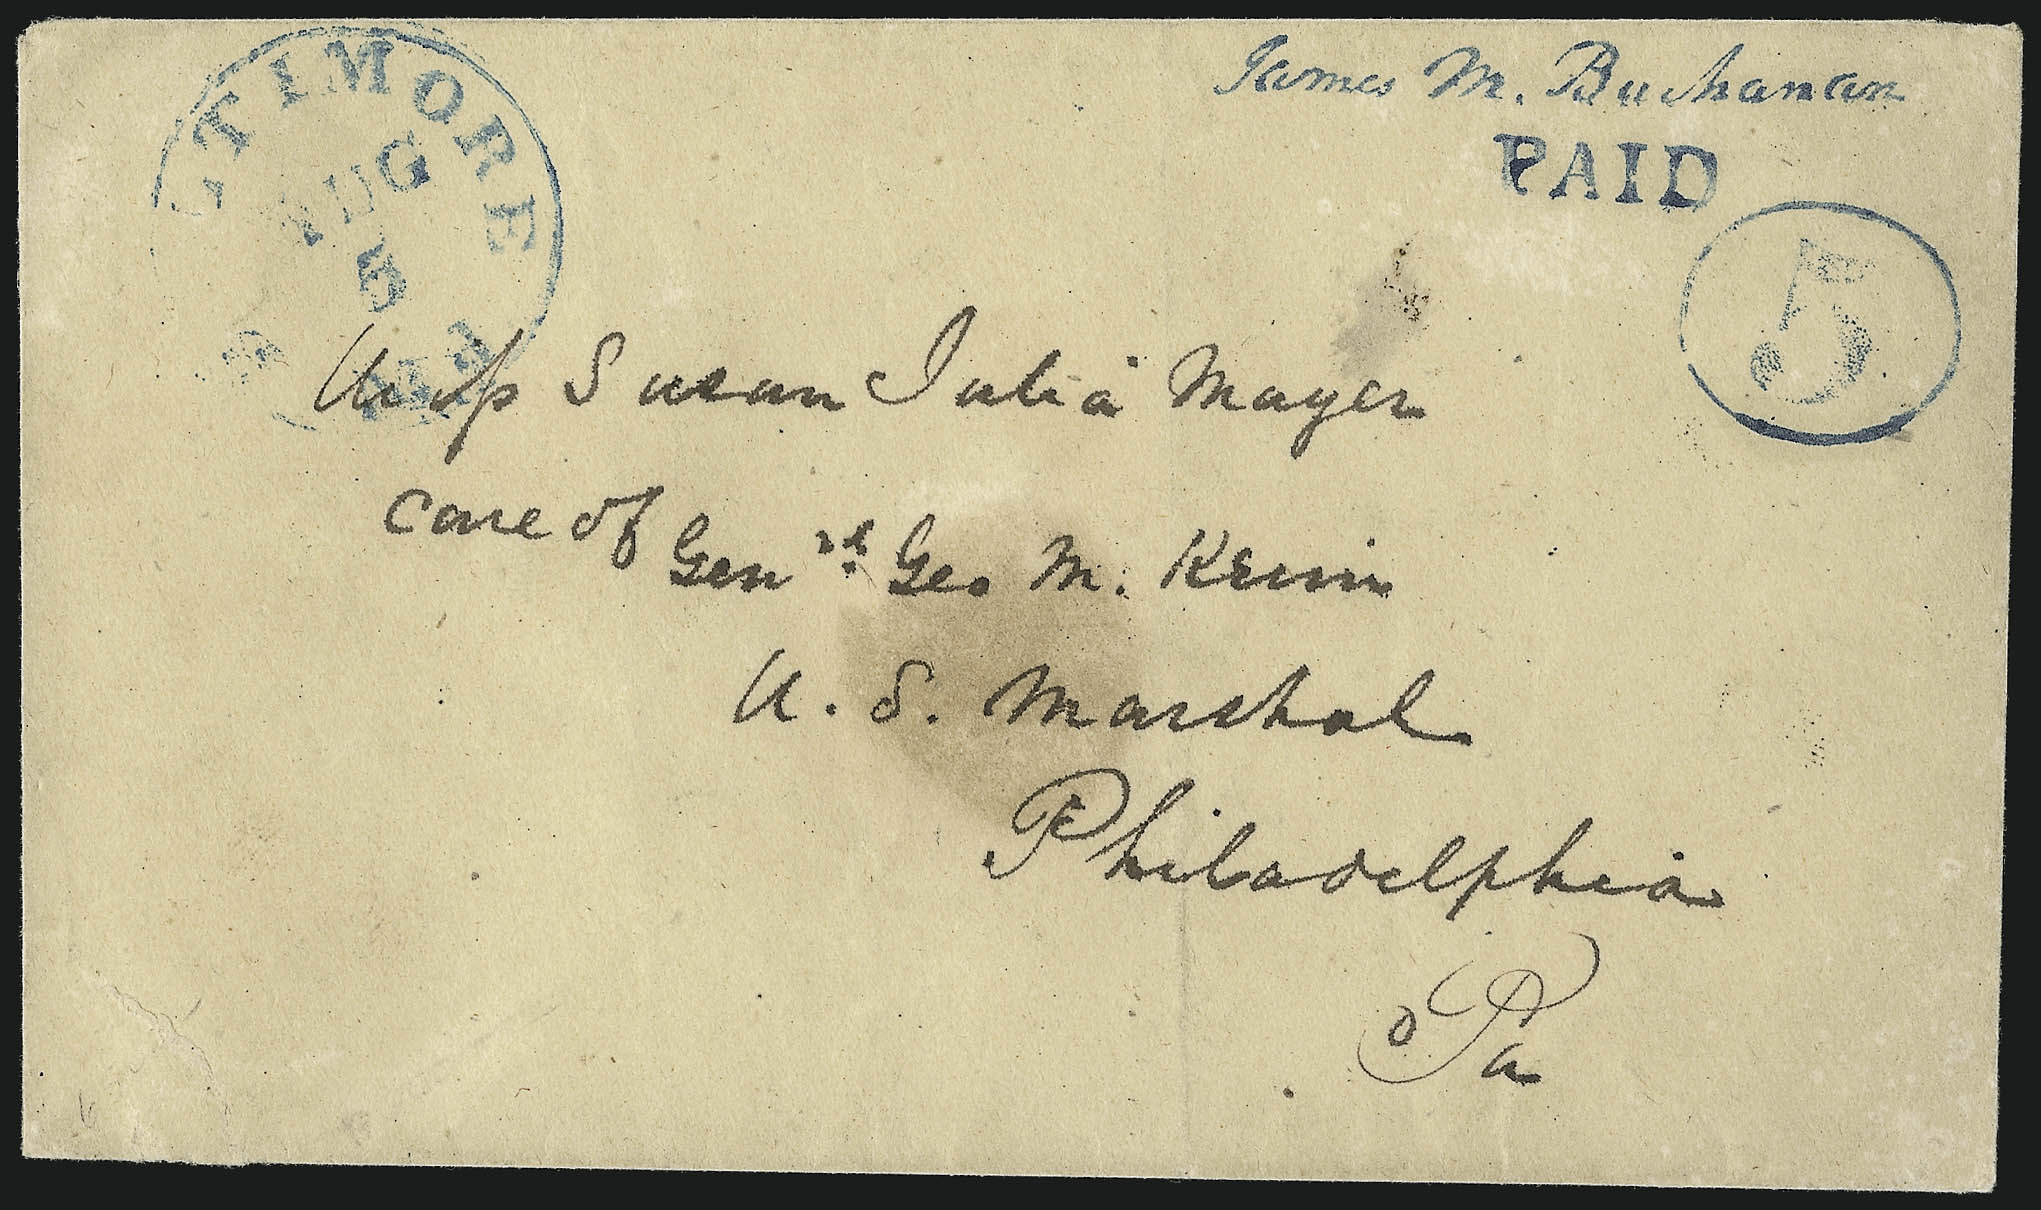 TIMORE
AUG
5
Md
James M. Buchanan
PAID
5
Miss Susan Julia Mayer
care of Genrl. Geo M. Keim
U. S. Marshal
Philadelphia
Pa